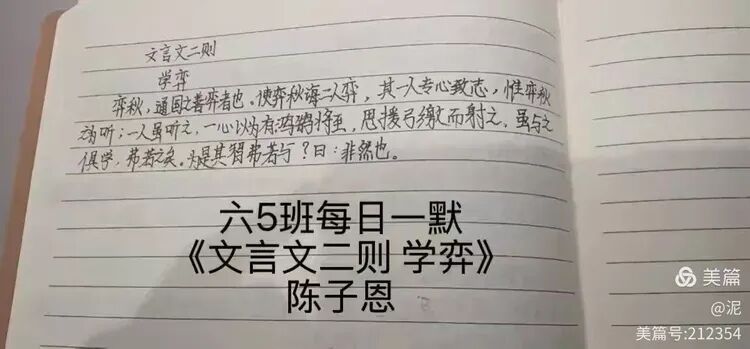 文言文二则
学弈
弈秋，通国之善弈者也。使弈秋诲二人弈，其一人专心致志，惟弈秋
之为听；一人虽听之，一心以为有鸿鹄将至，思援弓缴而射之。虽与之
俱学，弗若之矣。为是其智弗若与？曰：非然也。
六5班每日一默
《文言文二则 学弈》
陈子恩
美篇
@泥
美篇号:212354